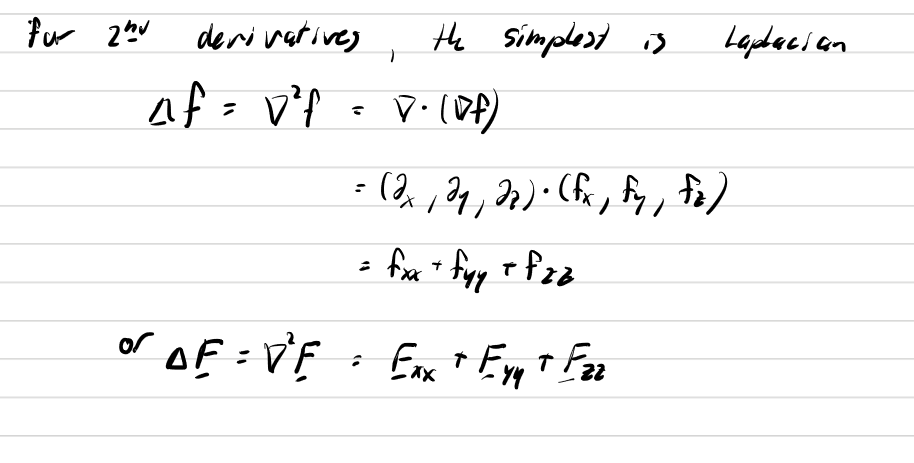 For 2nd derivatives, the simplest is Laplacian
Δf = ∇²f = ∇·(∇f)
= (∂x, ∂y, ∂z)·(fx, fy, fz)
= fxx + fyy + fzz
or ΔF = ∇²F = Fxx + Fyy + Fzz